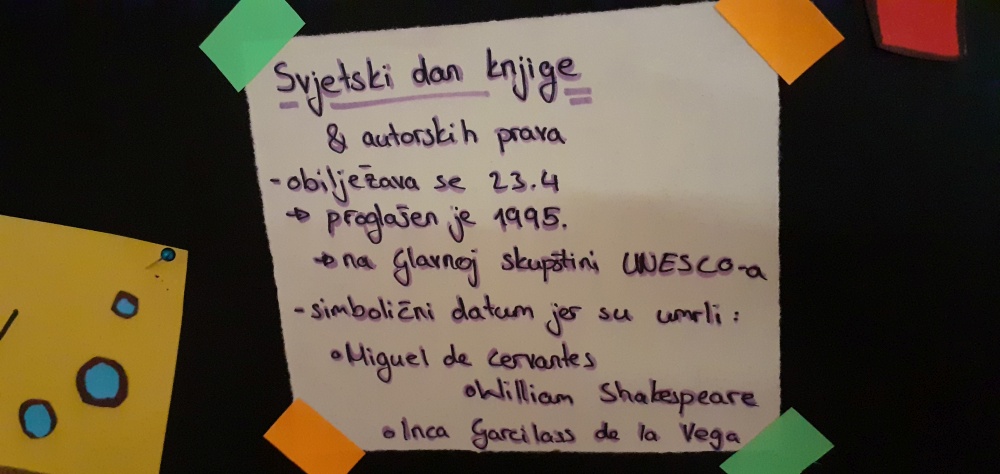 Svjetski dan knjige
& autorskih prava
- obilježava se 23.4
→ proglašen je 1995.
→ na Glavnoj skupštini UNESCO-a
- simbolični datum jer su umrli :
• Miguel de Cervantes
• William Shakespeare
• Inca Garcilass de la Vega